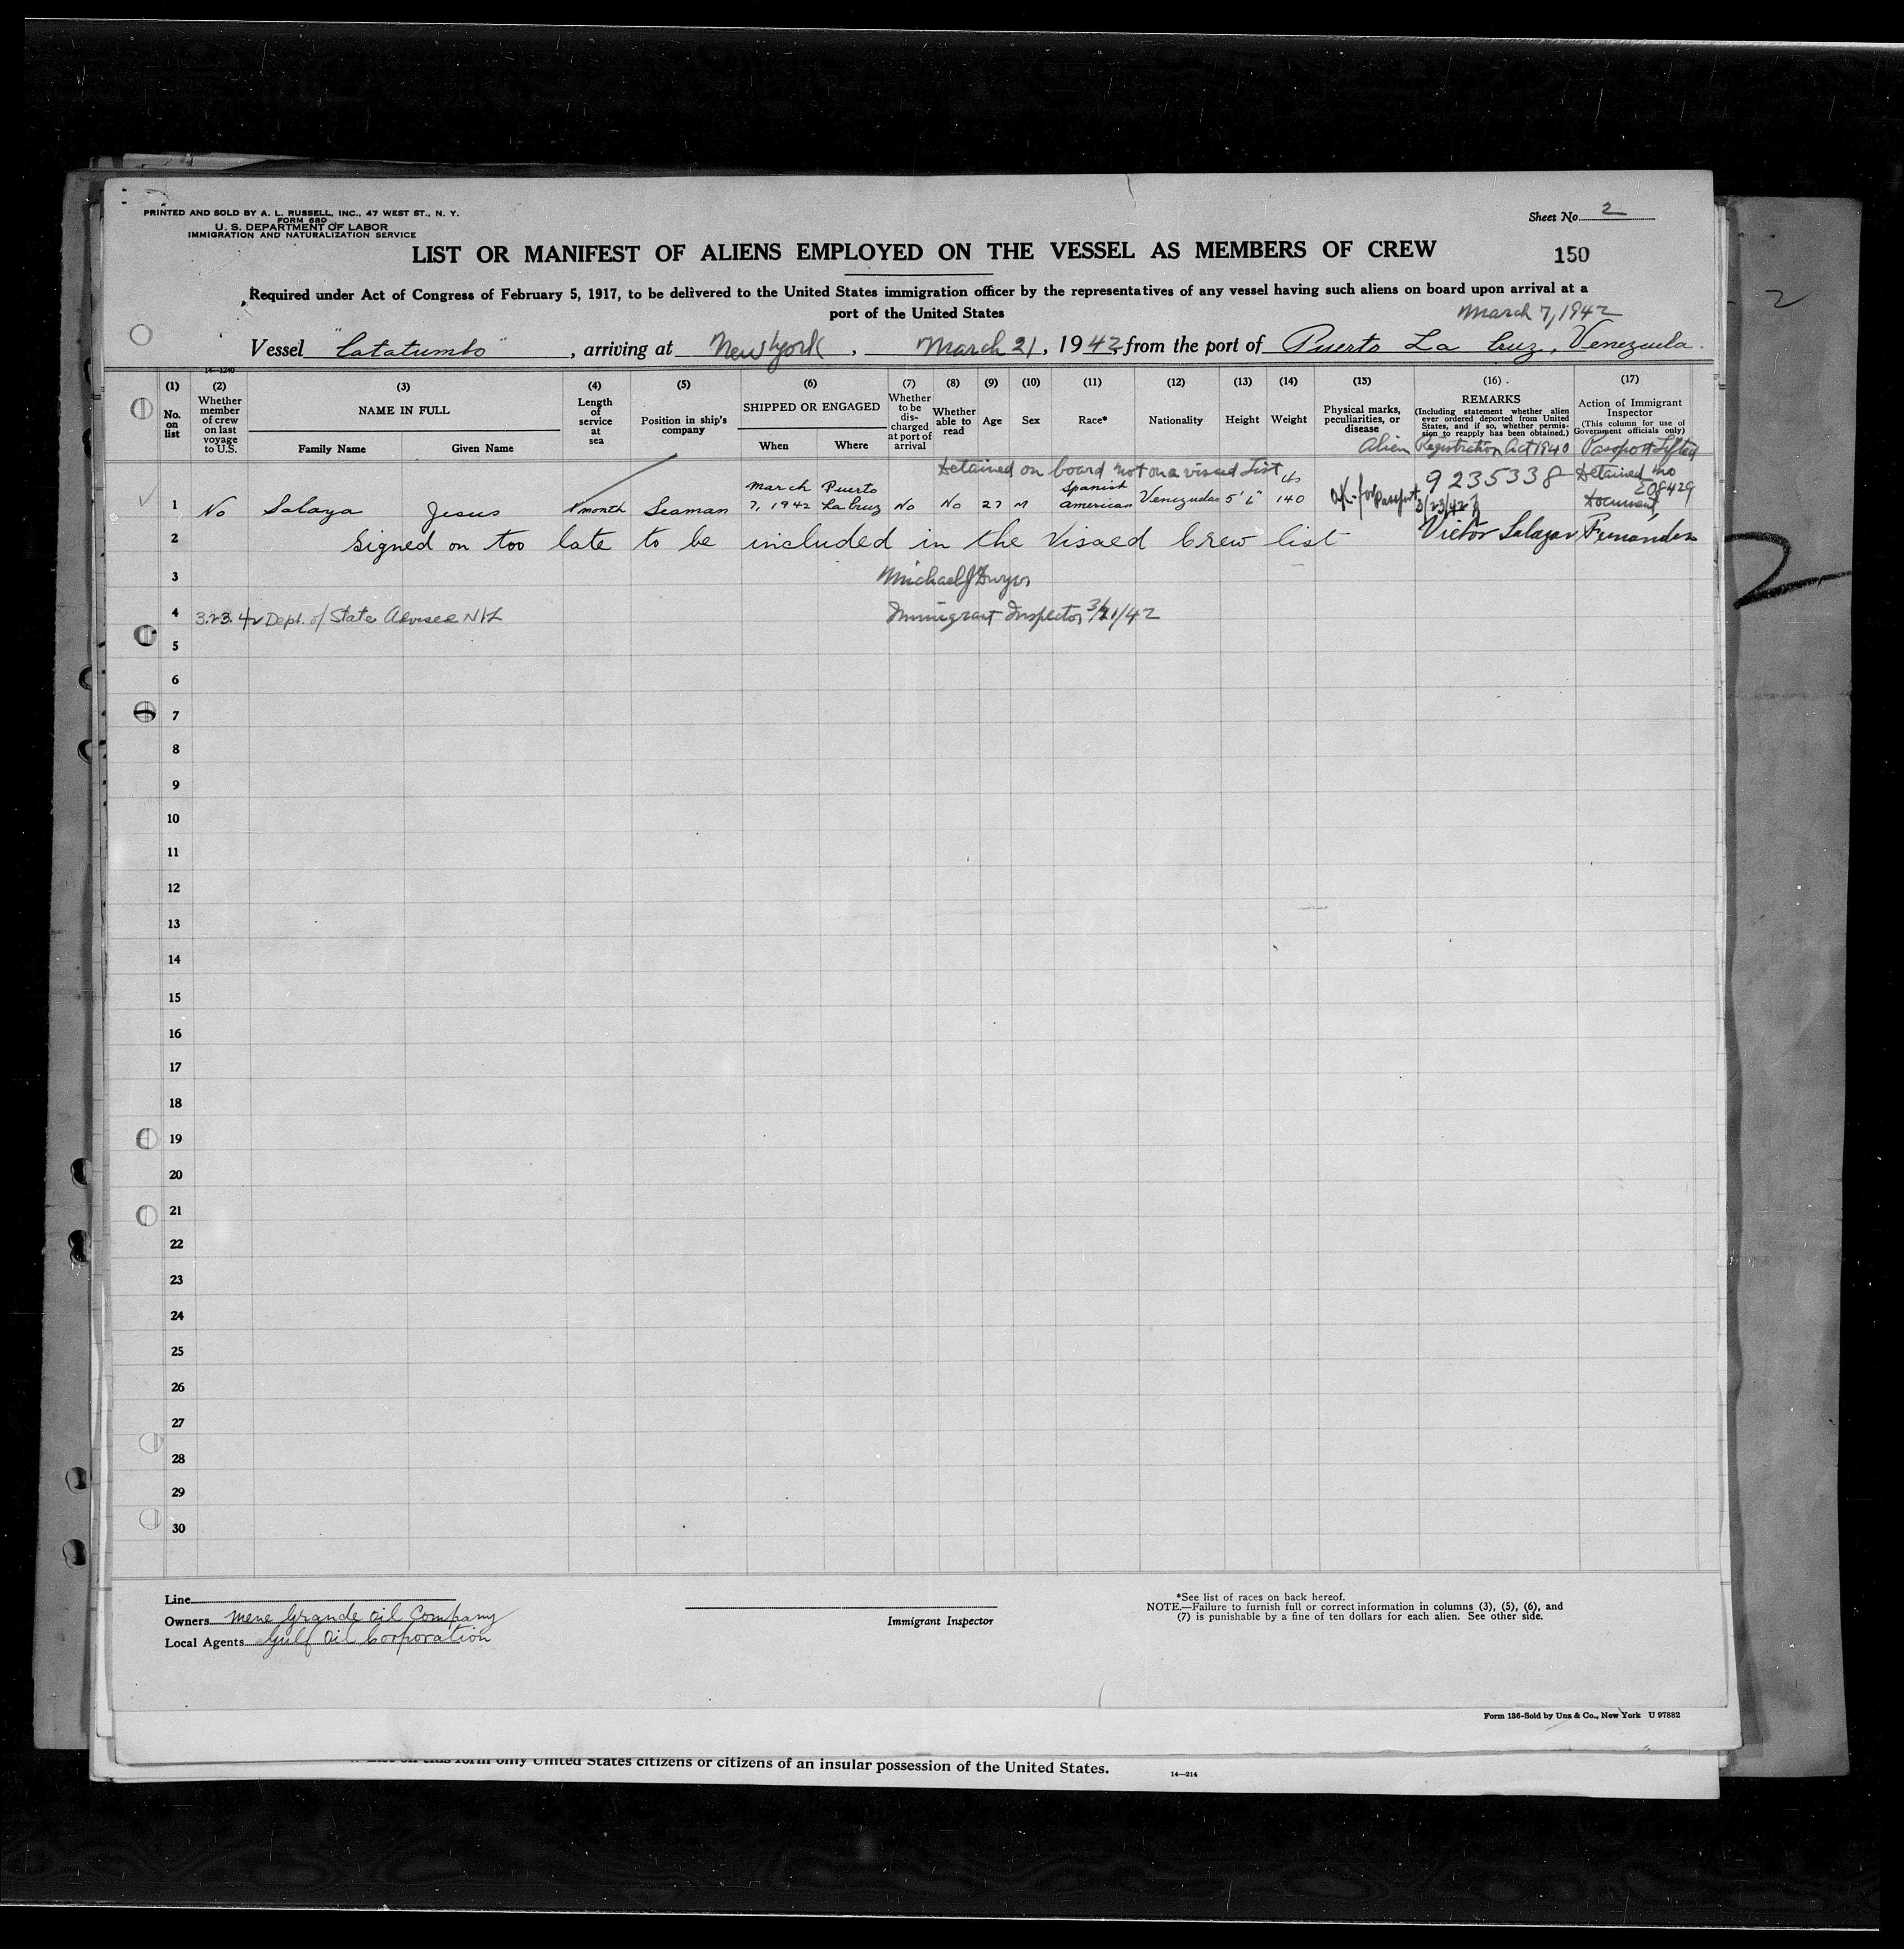 PRINTED AND SOLD BY A. L. RUSSELL, INC., 47 WEST ST., N. Y.
FORM 680
U. S. DEPARTMENT OF LABOR
IMMIGRATION AND NATURALIZATION SERVICE
Sheet No. 2
LIST OR MANIFEST OF ALIENS EMPLOYED ON THE VESSEL AS MEMBERS OF CREW
150
Required under Act of Congress of February 5, 1917, to be delivered to the United States immigration officer by the representatives of any vessel having such aliens on board upon arrival at a
port of the United States
March 7, 1942
Vessel "Catatumbo", arriving at New York, March 21, 1942, from the port of Puerto La Cruz, Venezuela.
14—1240
(1) (2) (3) (4) (5) (6) (7) (8) (9) (10) (11) (12) (13) (14) (15) (16) (17)
No. on list
Whether member of crew on last voyage to U.S.
NAME IN FULL
Family Name Given Name
Length of service at sea
Position in ship's company
SHIPPED OR ENGAGED
When Where
Whether to be discharged at port of arrival
Whether able to read
Age
Sex
Race*
Nationality
Height
Weight
Physical marks, peculiarities, or disease
REMARKS
(Including statement whether alien ever ordered deported from United States, and if so, whether permission to reapply has been obtained.)
Action of Immigrant Inspector
(This column for use of Government officials only)
Alien Registration Act 1940 Passport Lifted
Detained on board not on a visaed List
9235338 Detained no
208429
Document
1 No Salaya Jesus 1 month Seaman March 7, 1942 Puerto La Cruz No No 27 M Spanish American Venezuelan 5' 6" 140 lbs
OK. for Passport 3/23/42
2 Signed on too late to be included in the Visaed Crew list Victor Salazar Fernandez
3 Michael J Dwyer
4 3.23.42 Dept. of State Advised NIL Immigrant Inspector 3/21/42
5
6
7
8
9
10
11
12
13
14
15
16
17
18
19
20
21
22
23
24
25
26
27
28
29
30
Line
Owners Mene Grande Oil Company
Local Agents Gulf Oil Corporation
Immigrant Inspector
*See list of races on back hereof.
NOTE.—Failure to furnish full or correct information in columns (3), (5), (6), and
(7) is punishable by a fine of ten dollars for each alien. See other side.
Form 136-Sold by Unz & Co., New York U 97882
only United States citizens or citizens of an insular possession of the United States.
14—214
2
2